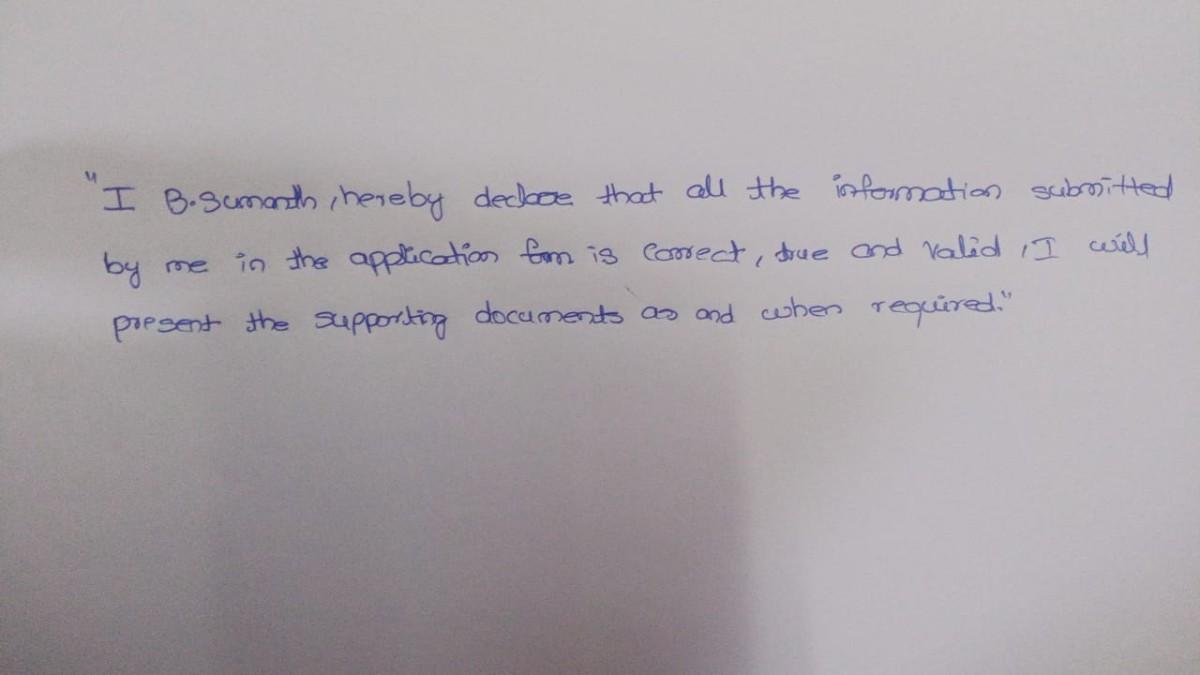 "I B.Sumanth, hereby declare that all the information submitted
by me in the application form is Correct, true and valid, I will
present the supporting documents as and when required."